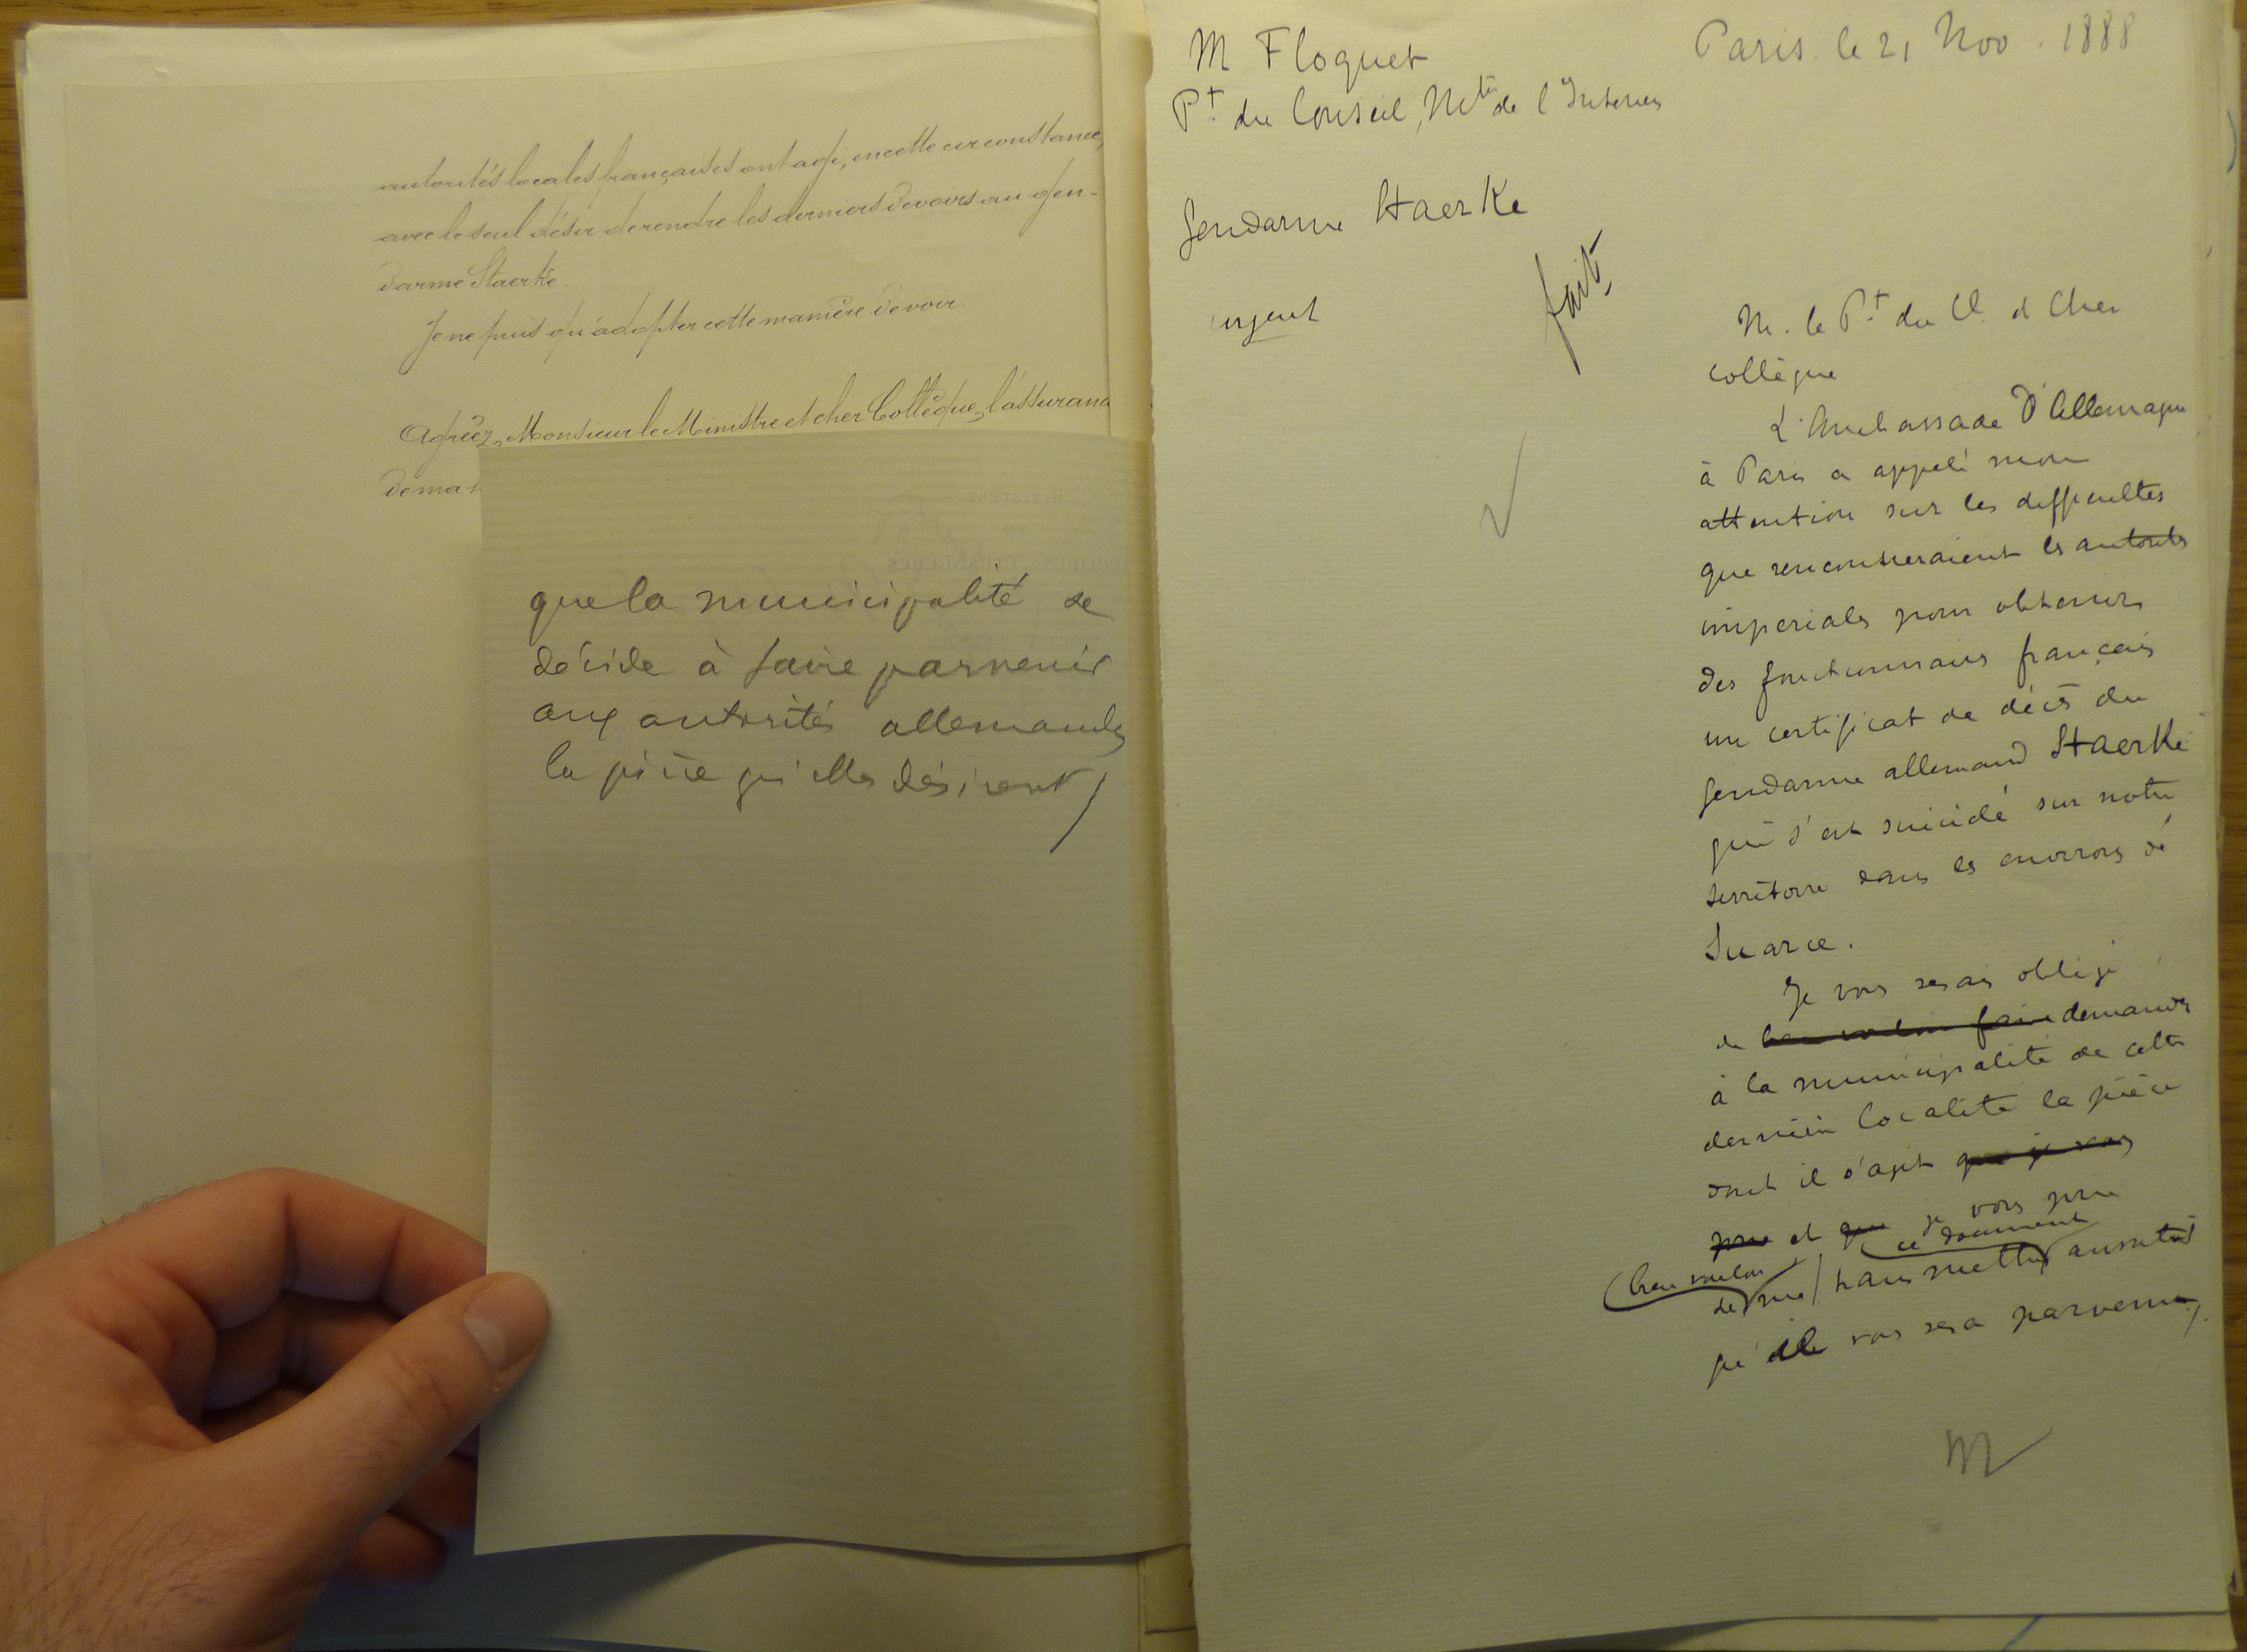 autorités locales françaises ont agi, en cette circonstance,
avec le seul désir de rendre les derniers devoirs au gen-
darme Staerké.
Je ne puis qu'adopter cette manière de voir.
Agréez, Monsieur le Ministre et cher Collègue, l'assuranc
de ma
que la municipalité se
décide à faire parvenir
aux autorités allemandes
la pièce qu'elles désirent/
M Floquet
Pt. du Conseil, Mtre de l'Intérieur
Paris le 21 Nov. 1888
Gendarme Staerke
fait
urgent
M. le Pt. du C. et Cher
collègue
L'Ambassade d'Allemagne
à Paris a appelé mon
attention sur les difficultés
que rencontreraient les autorités
impériales pour obtenir
des fonctionnaires français
un certificat de décès du
gendarme allemand Staerké
qui s'est suicidé sur notre
territoire dans les environs de
Suarce.
Je vous serais obligé
de bien vouloir faire demander
à la municipalité de cette
dernière localité la pièce
dont il s'agit que je vous
prie et que je vous prie
ce document
bien vouloir
de me / transmettre aussitôt
qu'il vous sera parvenu/.